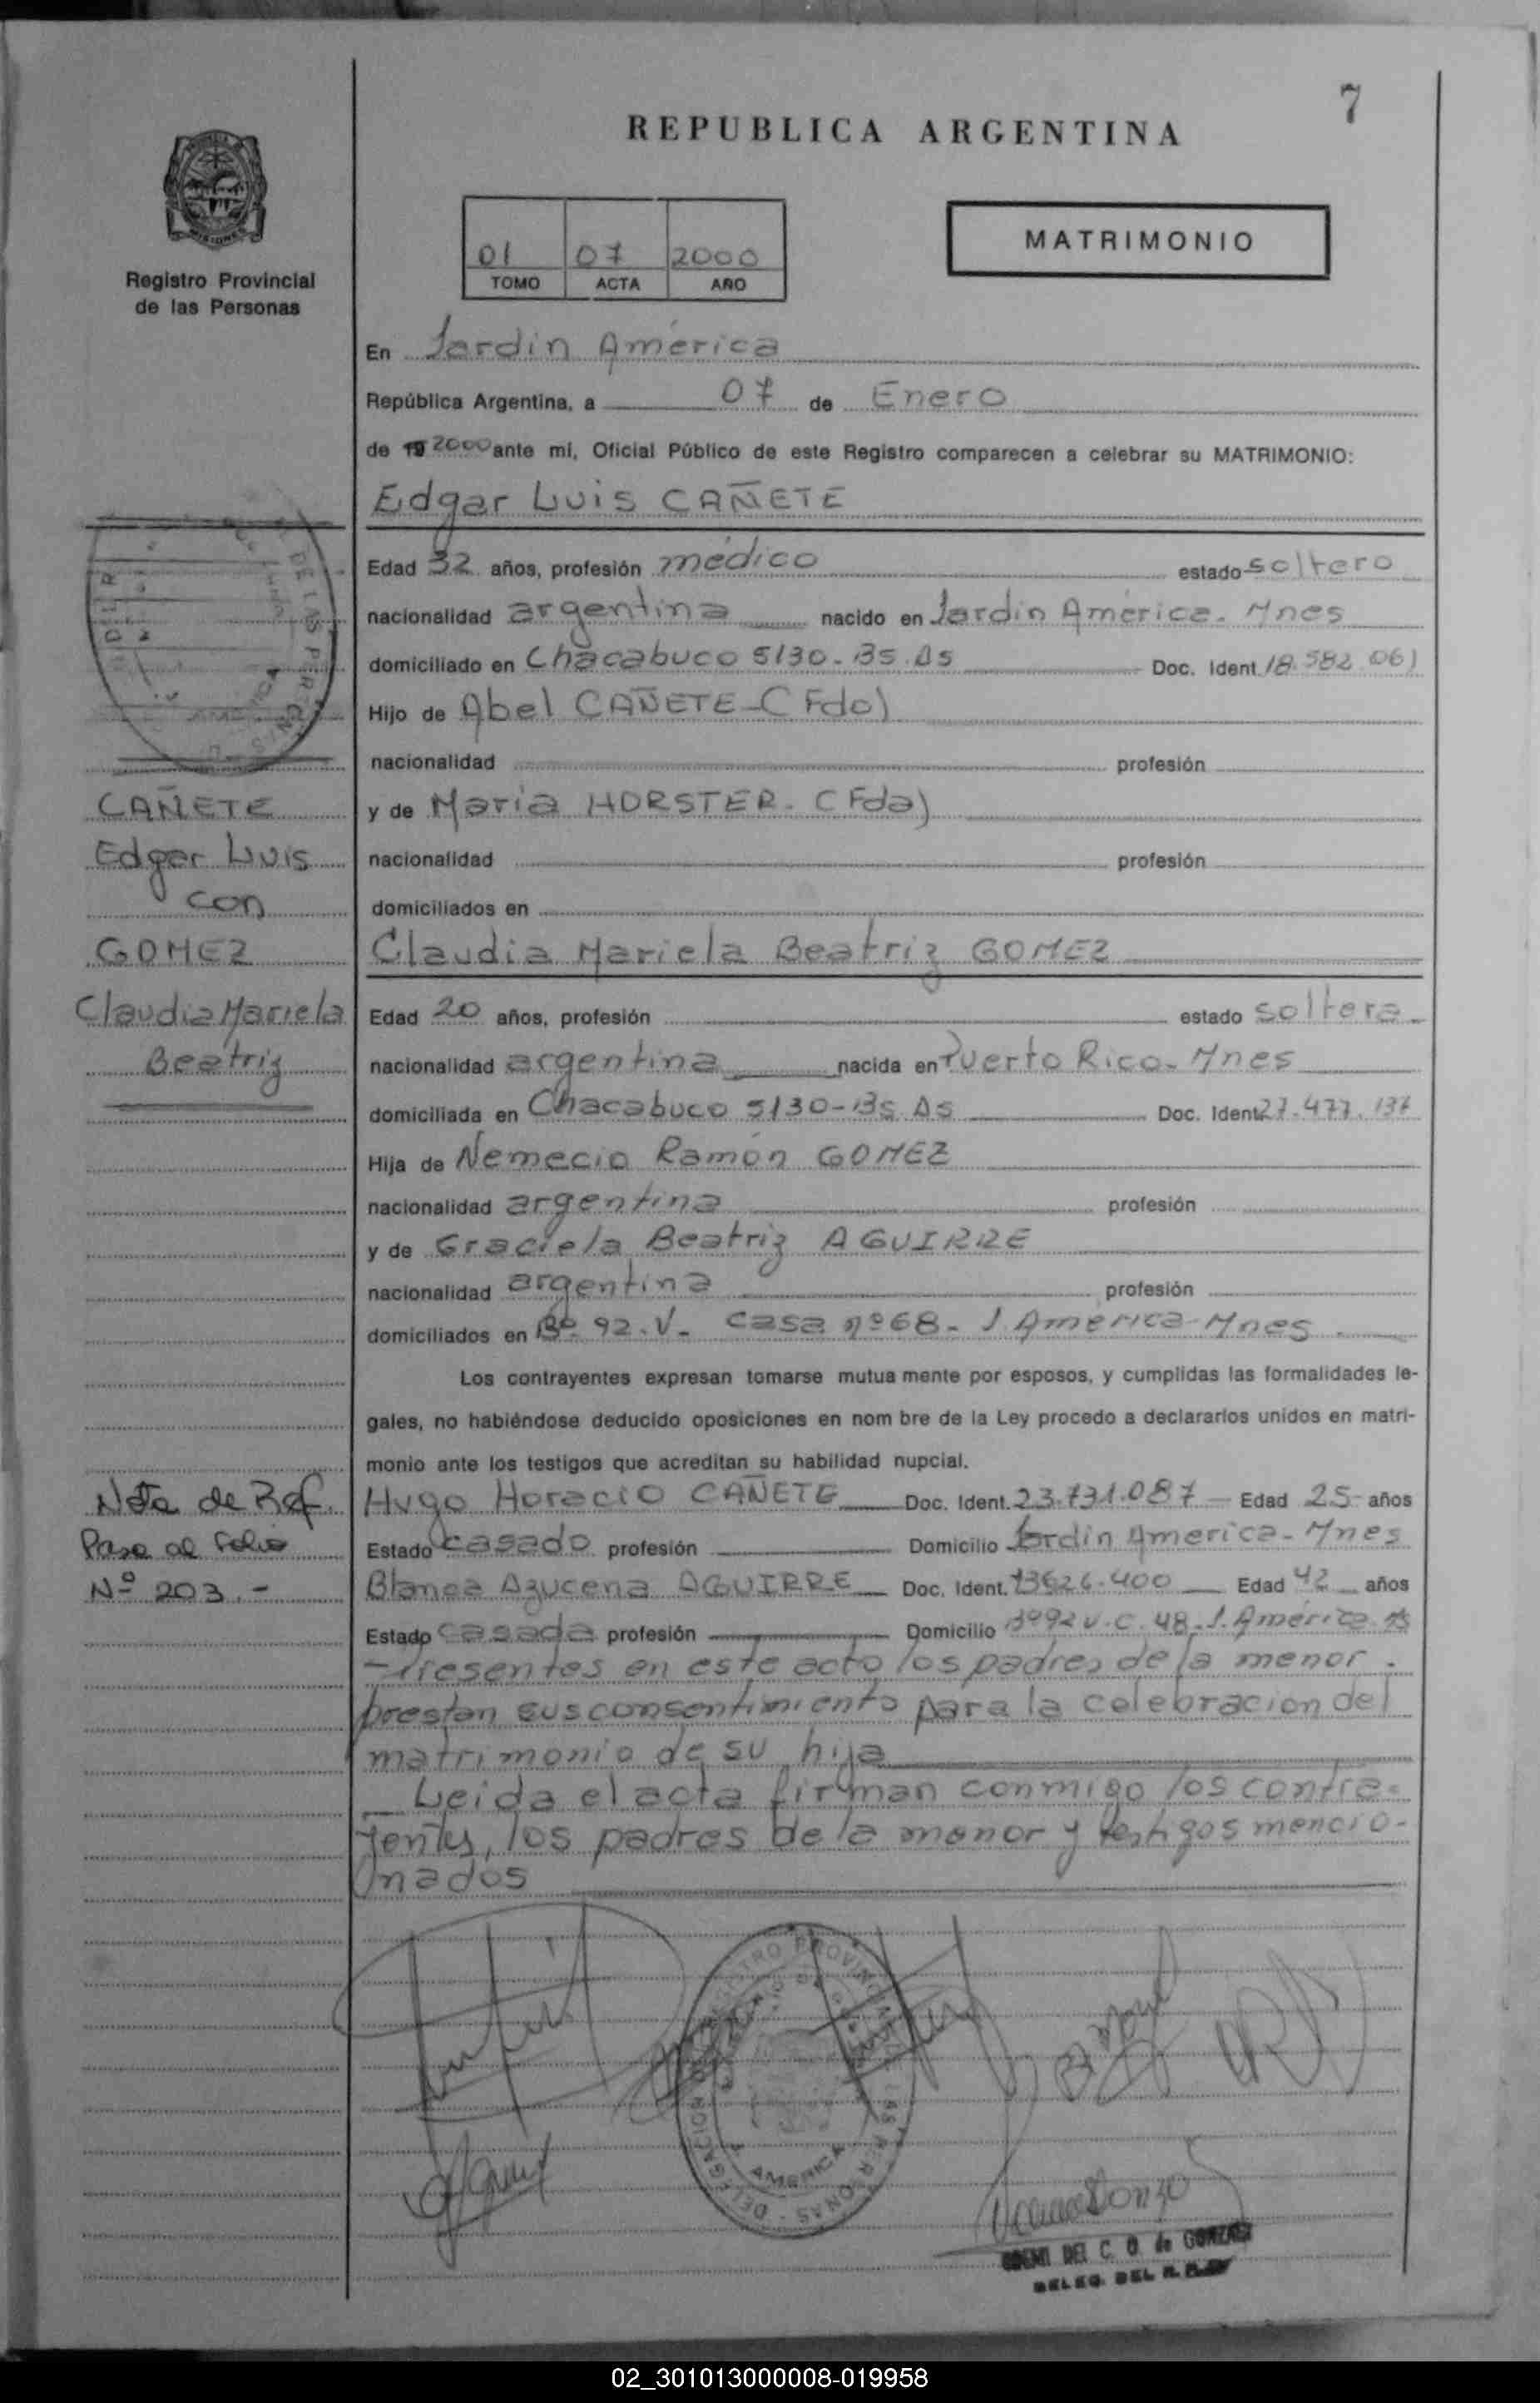 7
REPUBLICA ARGENTINA
MISIONES
Registro Provincial
de las Personas
01 07 2000
TOMO ACTA AÑO
MATRIMONIO
En Jardin América
República Argentina, a 07 de Enero
de 19 2000 ante mi, Oficial Público de este Registro comparecen a celebrar su MATRIMONIO:
Edgar Luis CAÑETE
Edad 32 años, profesión médico estado soltero
nacionalidad argentina nacido en Jardin América. Mnes
domiciliado en Chacabuco 5130-Bs.As Doc. Ident. 18.582.061
Hijo de Abel CAÑETE-(Fdo)
nacionalidad profesión
y de María HORSTER.(Fda)
nacionalidad profesión
domiciliados en
CAÑETE
Edgar Luis
con
GOMEZ
Claudia Mariela
Beatriz
Claudia Mariela Beatriz GOMEZ
Edad 20 años, profesión estado soltera
nacionalidad argentina nacida en Puerto Rico. Mnes
domiciliada en Chacabuco 5130-Bs.As Doc. Ident. 27.477.137
Hija de Nemecio Ramón GOMEZ
nacionalidad argentina profesión
y de Graciela Beatriz AGUIRRE
nacionalidad argentina profesión
domiciliados en Bº 92.V. Casa nº68- J.América-Mnes
Los contrayentes expresan tomarse mutua mente por esposos, y cumplidas las formalidades le-
gales, no habiéndose deducido oposiciones en nom bre de la Ley procedo a declararlos unidos en matri-
monio ante los testigos que acreditan su habilidad nupcial.
Nota de Ref.
Pasa al folio
Nº 203.-
Hugo Horacio CAÑETE Doc. Ident. 23.731.087 Edad 25 años
Estado casado profesión Domicilio Jardin America-Mnes
Blanca Azucena AGUIRRE Doc. Ident. 13626.400 Edad 42 años
Estado casada profesión Domicilio Bº92 V.C. 48.J.América
-Presentes en este acto los padres de la menor.
prestan sus consentimiento para la celebracion del
matrimonio de su hija
Leida el acta firman conmigo los contra-
yentes, los padres de la menor y testigos mencio-
nados
DELEGACION PROVINCIAL DE LAS PERSONAS
AMERICA
DEL C. O. de GONZALEZ
DELEG. DEL R. P.
02_301013000008-019958